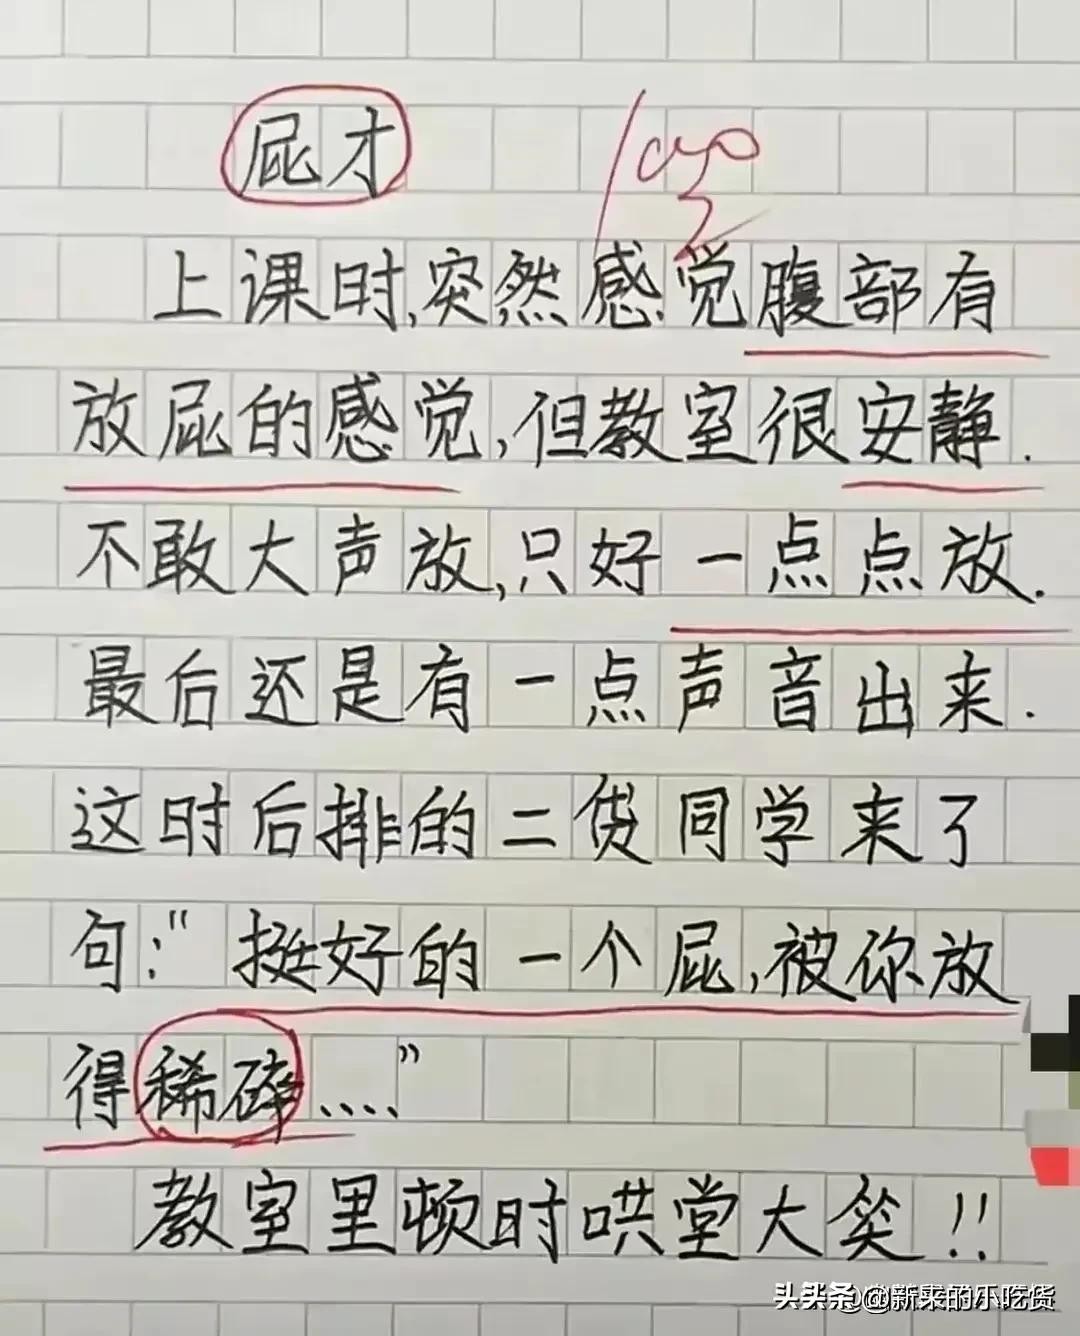 屁才
100
上课时,突然感觉腹部有
放屁的感觉,但教室很安静.
不敢大声放,只好一点点放.
最后还是有一点声音出来.
这时后排的二货同学来了
句:"挺好的一个屁,被你放
得稀碎....”
教室里顿时哄堂大笑!!
头条 @新来的小吃货